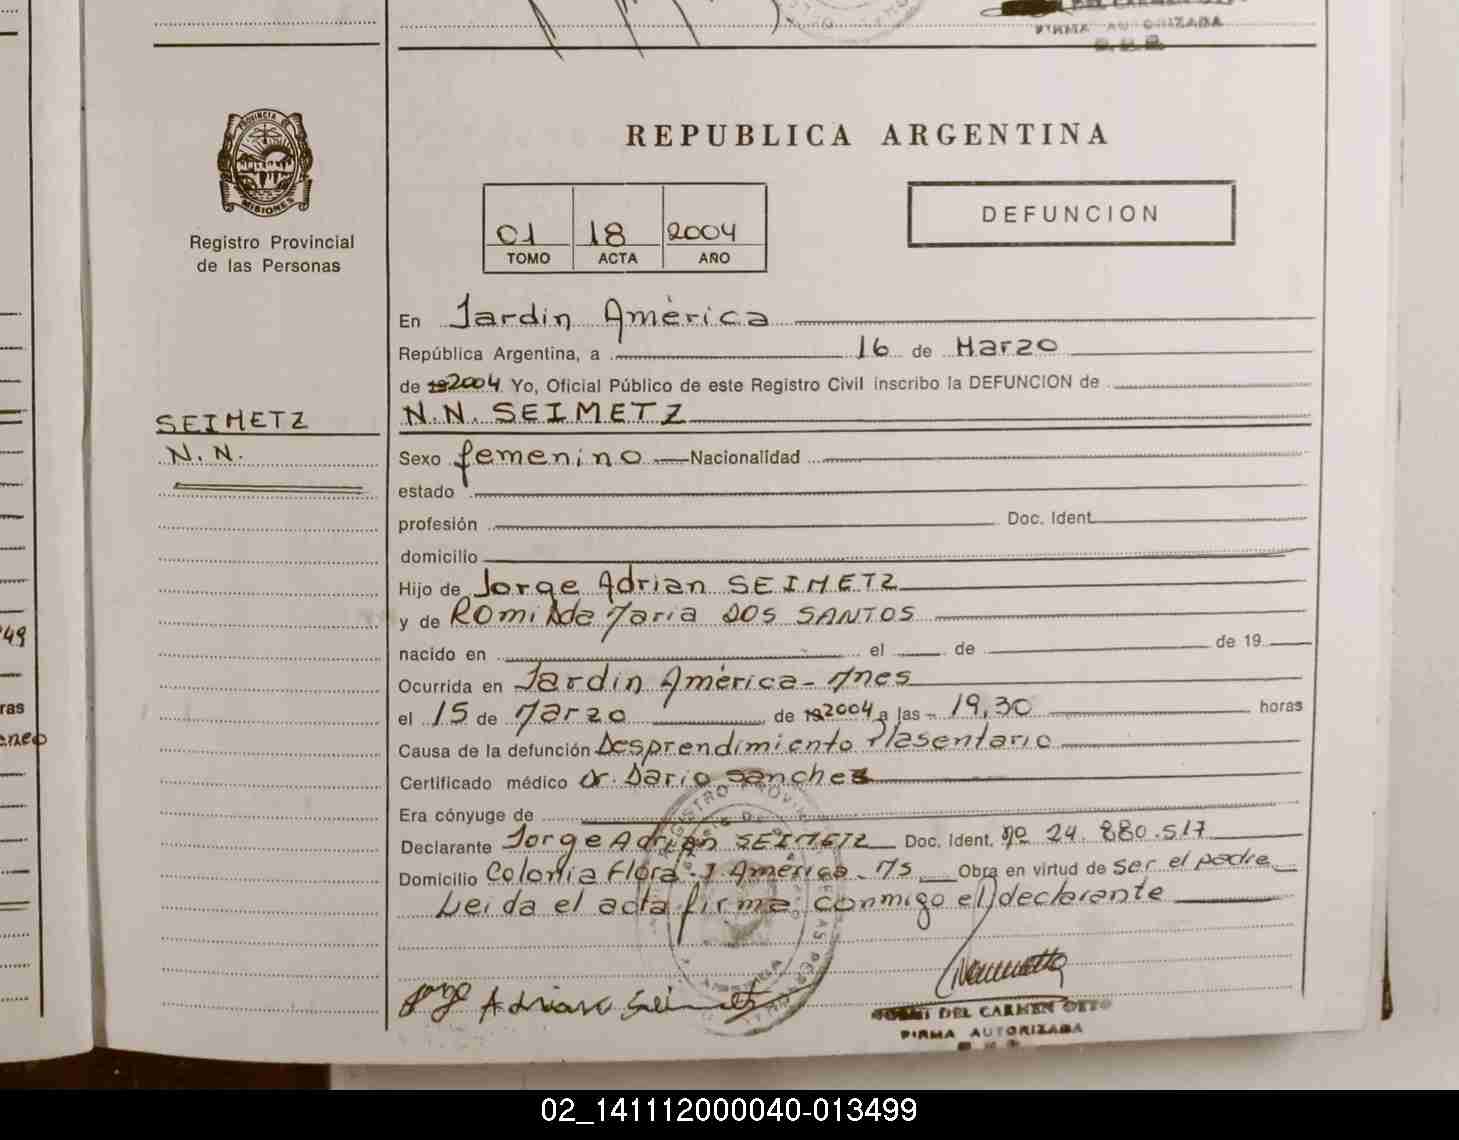 FIRMA AUTORIZADA
PROVINCIA DE
MISIONES
Registro Provincial
de las Personas
REPUBLICA ARGENTINA
01 18 2004
TOMO ACTA AÑO
DEFUNCION
En Jardin América
República Argentina, a 16 de Marzo
de 2004 Yo, Oficial Público de este Registro Civil inscribo la DEFUNCION de
N.N. SEIMETZ
SEIMETZ
N.N.
Sexo femenino Nacionalidad
estado
profesión Doc. Ident.
domicilio
Hijo de Jorge Adrian SEIMETZ
y de ROmilda Maria DOS SANTOS
nacido en el de de 19
Ocurrida en Jardin América - Mnes
el 15 de Marzo de 2004 a las 19,30 horas
Causa de la defunción Desprendimiento Plasentario
Certificado médico Dr. Dario Sanchez
Era cónyuge de
Declarante Jorge Adrian SEIMETZ Doc. Ident. Nº 24.880.517
Domicilio Colonia Flora - J. América - Ms Obra en virtud de ser el padre
Leida el acta firma conmigo el declarante
Jorge Adrian Seimetz
DEL CARMEN OTTO
FIRMA AUTORIZADA
49
ras
02_141112000040-013499